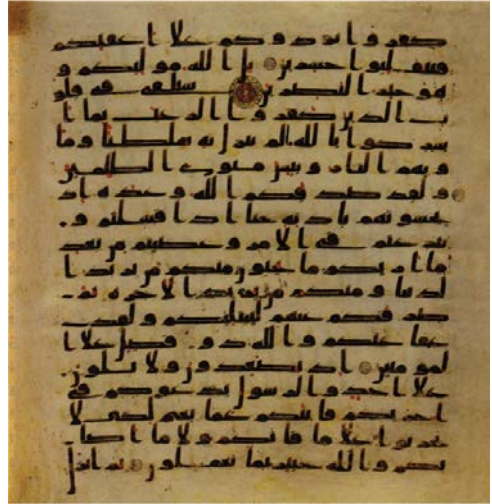 كفروا يردوكم علا اعقبكم
فتنقلبوا خسرين بل الله موليكم و
هو خير النصرين سنلقى فى قلو
ب الذين كفروا الرعب بما ا
شركوا بالله ما لم ينزل به سلطنا وما
ويهم النار وبئس مثوى الظلمين
ولقد صدقكم الله وعده اذ
تحسونهم باذنه حتا اذا فشلتم و
تنزعتم فى الامر وعصيتم من بعد
ما اريكم ما تحبون منكم من يريد ا
لدنيا ومنكم من يريد الاخرة ثم
صرفكم عنهم ليبتليكم ولقد
عفا عنكم والله ذو فضل علا ا
لمومنين اذ تصعدون ولا تلون
علا احد والرسول يدعوكم فى
اخريكم فاثبكم غما بغم لكيلا
تحزنوا علا ما فاتكم ولا ما اصا
بكم والله خبير بما تعملون ثم انزل